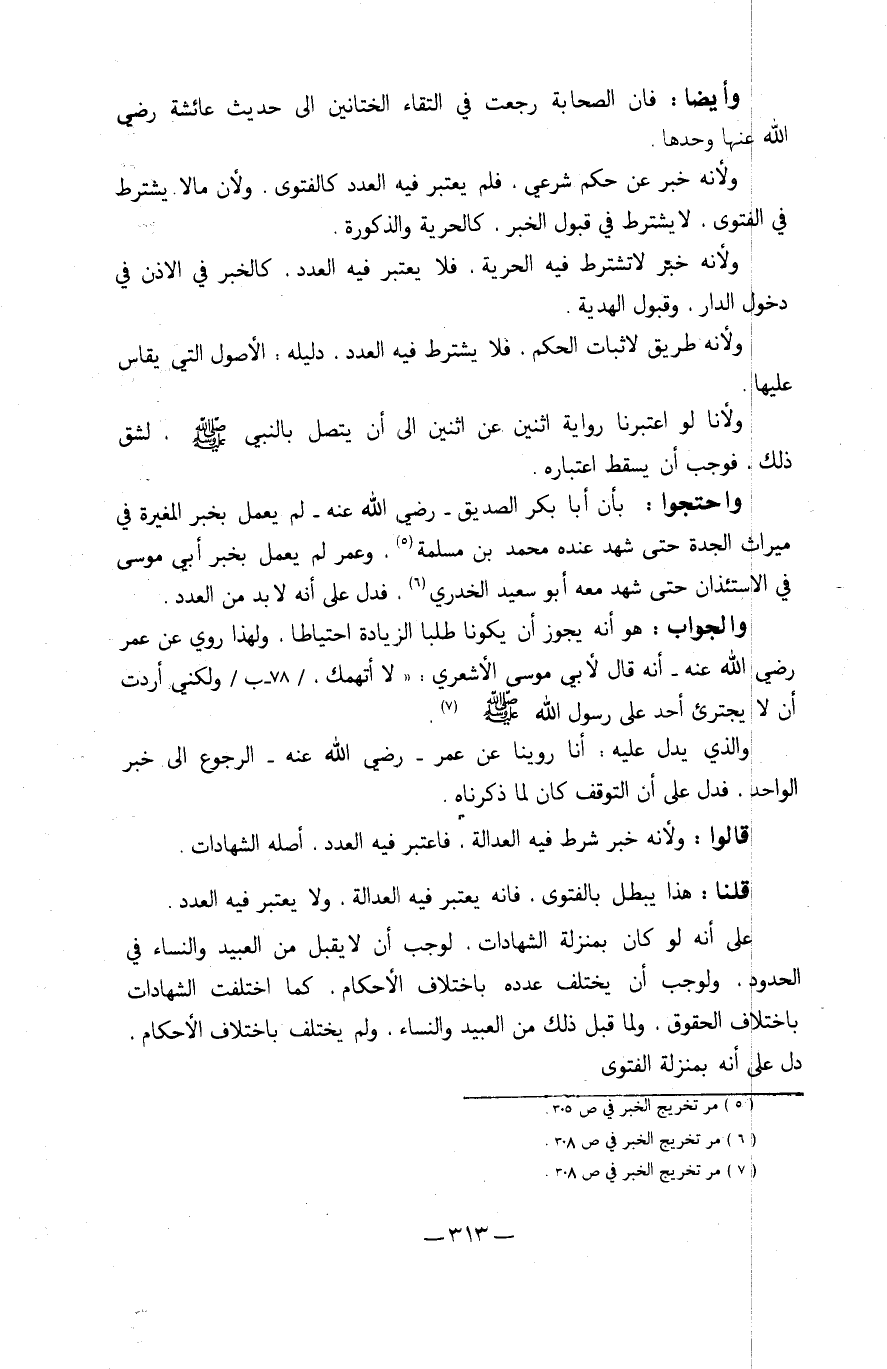 وأيضا : فان الصحابة رجعت في التقاء الختانين الى حديث عائشة رضي
الله عنها وحدها .
ولأنه خبر عن حكم شرعي ، فلم يعتبر فيه العدد كالفتوى ، ولأن مالا يشترط
في الفتوى ، لايشترط في قبول الخبر ، كالحرية والذكورة .
ولأنه خبر لاتشترط فيه الحرية ، فلا يعتبر فيه العدد ، كالخبر في الاذن في
دخول الدار ، وقبول الهدية .
ولأنه طريق لاثبات الحكم ، فلا يشترط فيه العدد ، دليله : الأصول التي يقاس
عليها .
ولأنا لو اعتبرنا رواية اثنين عن اثنين الى أن يتصل بالنبي ﷺ ، لشق
ذلك ، فوجب أن يسقط اعتباره .
واحتجوا : بأن أبا بكر الصديق ـ رضي الله عنه ـ لم يعمل بخبر المغيرة في
ميراث الجدة حتى شهد عنده محمد بن مسلمة(٥) ، وعمر لم يعمل بخبر أبي موسى
في الاستئذان حتى شهد معه أبو سعيد الخدري(٦) ، فدل على أنه لابد من العدد .
والجواب : هو أنه يجوز أن يكونا طلبا الزيادة احتياطا ، ولهذا روي عن عمر
رضي الله عنه ـ أنه قال لأبي موسى الأشعري : « لا أتهمك ، / ٧٨ـب / ولكني أردت
أن لا يجترئ أحد على رسول الله ﷺ (٧) .
والذي يدل عليه : أنا روينا عن عمر ـ رضي الله عنه ـ الرجوع الى خبر
الواحد ، فدل على أن التوقف كان لما ذكرناه .
قالوا : ولأنه خبر شرط فيه العدالة ، فاعتبر فيه العدد ، أصله الشهادات .
قلنا : هذا يبطل بالفتوى ، فانه يعتبر فيه العدالة ، ولا يعتبر فيه العدد .
على أنه لو كان بمنزلة الشهادات ، لوجب أن لايقبل من العبيد والنساء في
الحدود ، ولوجب أن يختلف عدده باختلاف الأحكام ، كما اختلفت الشهادات
باختلاف الحقوق ، ولما قبل ذلك من العبيد والنساء ، ولم يختلف باختلاف الأحكام ،
دل على أنه بمنزلة الفتوى
( ٥ ) مر تخريج الخبر في ص ٣٠٥ .
( ٦ ) مر تخريج الخبر في ص ٣٠٨ .
( ٧ ) مر تخريج الخبر في ص ٣٠٨ .
ـ ٣١٣ ـ